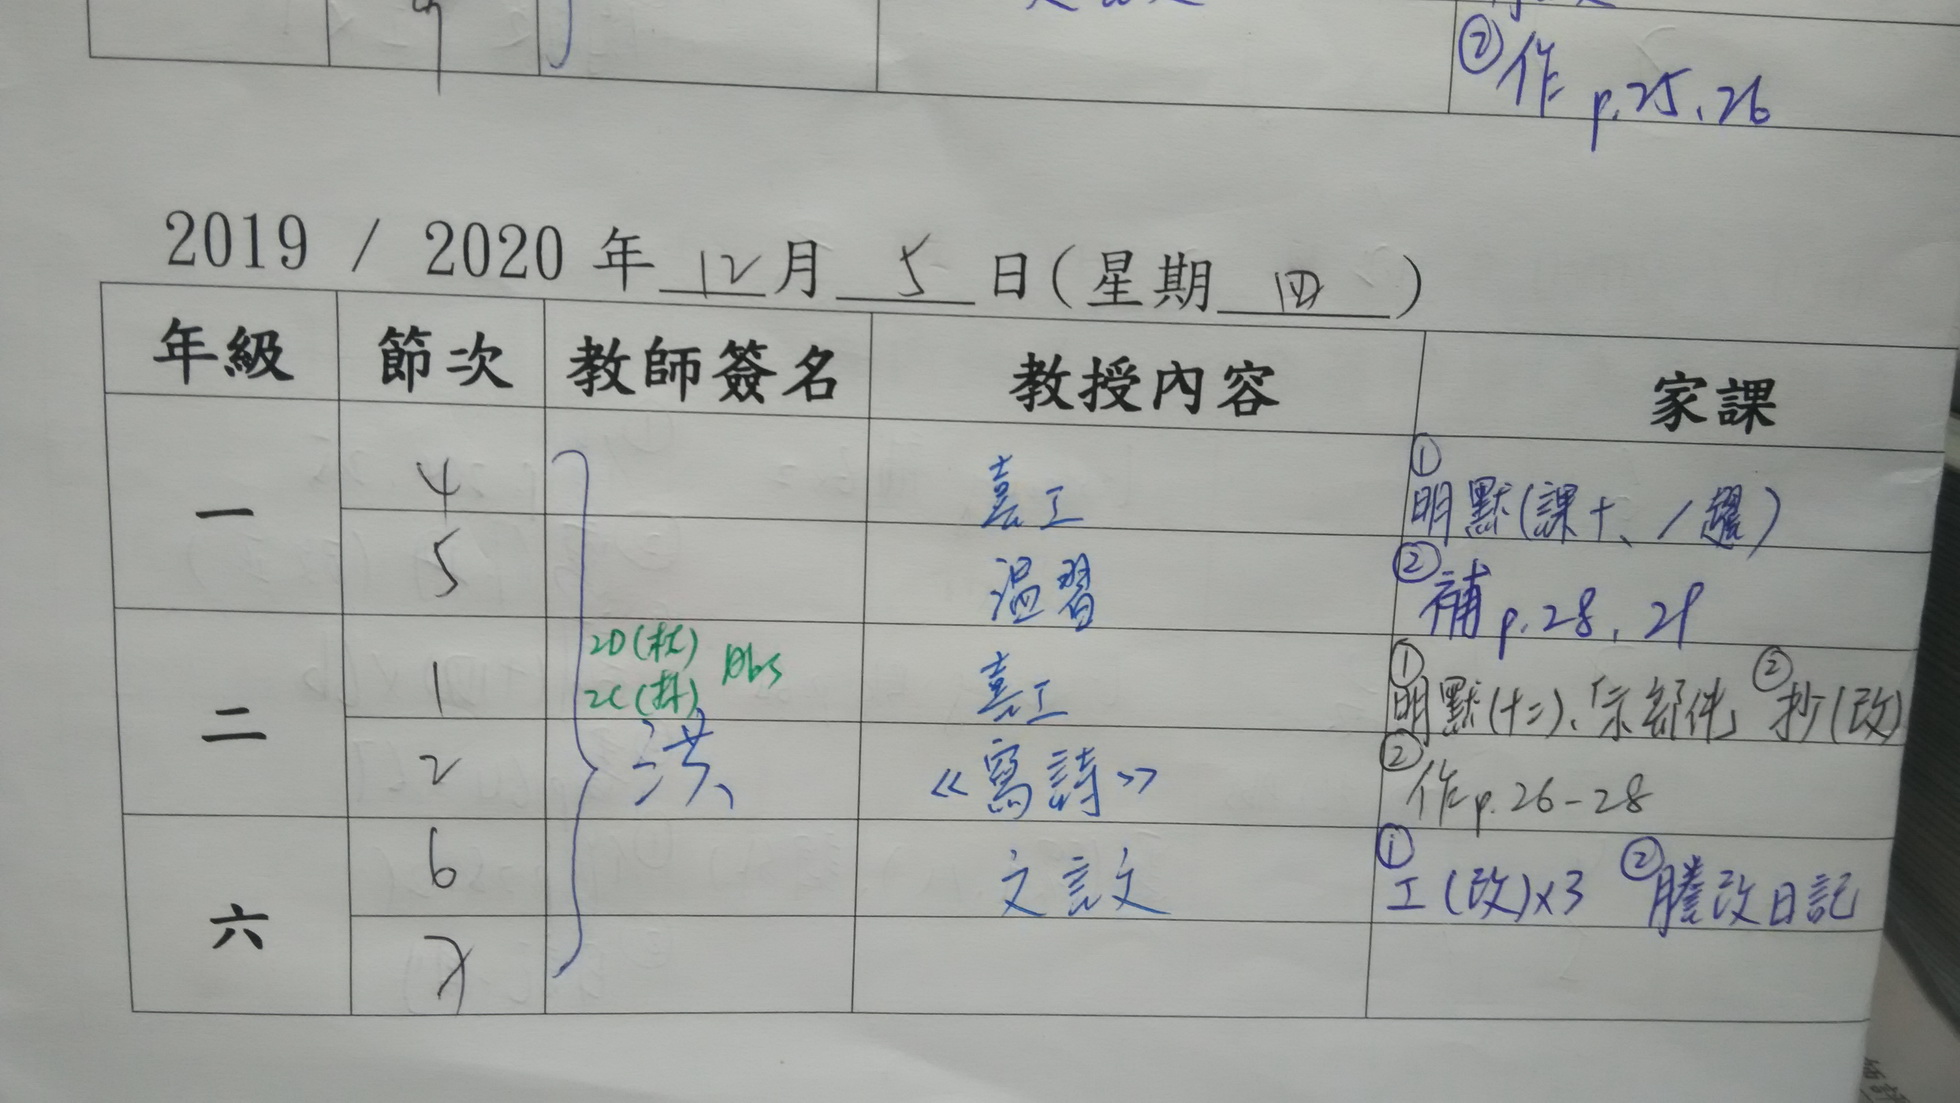 ②作 p.25、26
2019 / 2020 年 12 月 5 日(星期 四 )
年級 節次 教師簽名 教授內容 家課
一 4 喜工 ①明默(課十、/趯)
5 溫習 ②補 p.28、29
二 1 2D(林) 2C(林) Abs 喜工 ①明默(十二)、「示部件」 ②抄(改)
2 洪 《寫詩》 ②作p.26-28
六 6 文言文 ①工(改)x3 ②謄改日記
7